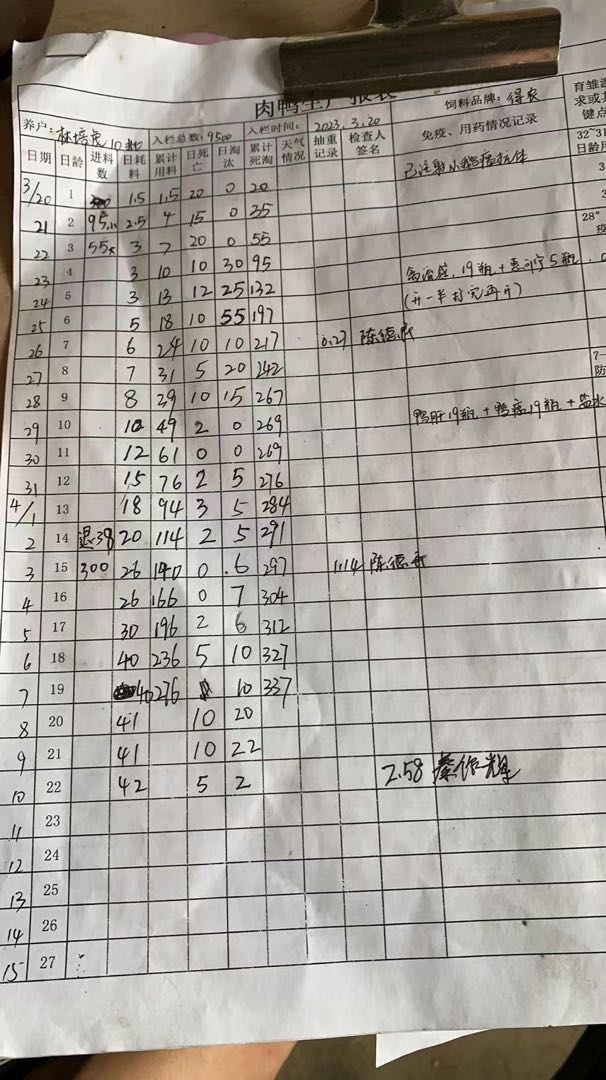 肉鸭生产报表
养户: 10 入栏总数: 9500 入栏时间: 2023.3.20 饲料品牌: 得农
日期 日龄 进料数 日耗料 累计用料 日死亡 日淘汰 累计死淘 天气情况 抽重记录 检查人签名 免疫、用药情况记录
3/20 1 1.5 1.5 20 0 20
21 2 2.5 4 15 0 35
22 3 3 7 20 0 55
23 4 3 10 10 30 95 19瓶+ 5瓶
24 5 3 13 12 25 132 (开一半 打完再开)
25 6 5 18 10 55 197
26 7 6 24 10 10 217 0.27 陈德
27 8 7 31 5 20 242
28 9 8 39 10 15 267
29 10 10 49 2 0 269 鸭肝19瓶+鸭瘟19瓶+盐水
30 11 12 61 0 0 269
31 12 15 76 2 5 276
4/1 13 18 94 3 5 284
2 14 退38 20 114 2 5 291
3 15 300 26 140 0 6 297 1.14 陈德
4 16 26 166 0 7 304
5 17 30 196 2 6 312
6 18 40 236 5 10 327
7 19 40 276 10 337
8 20 41 10 20
9 21 41 10 22
10 22 42 5 2 2.58
11 23
12 24
13 25
14 26
15 27